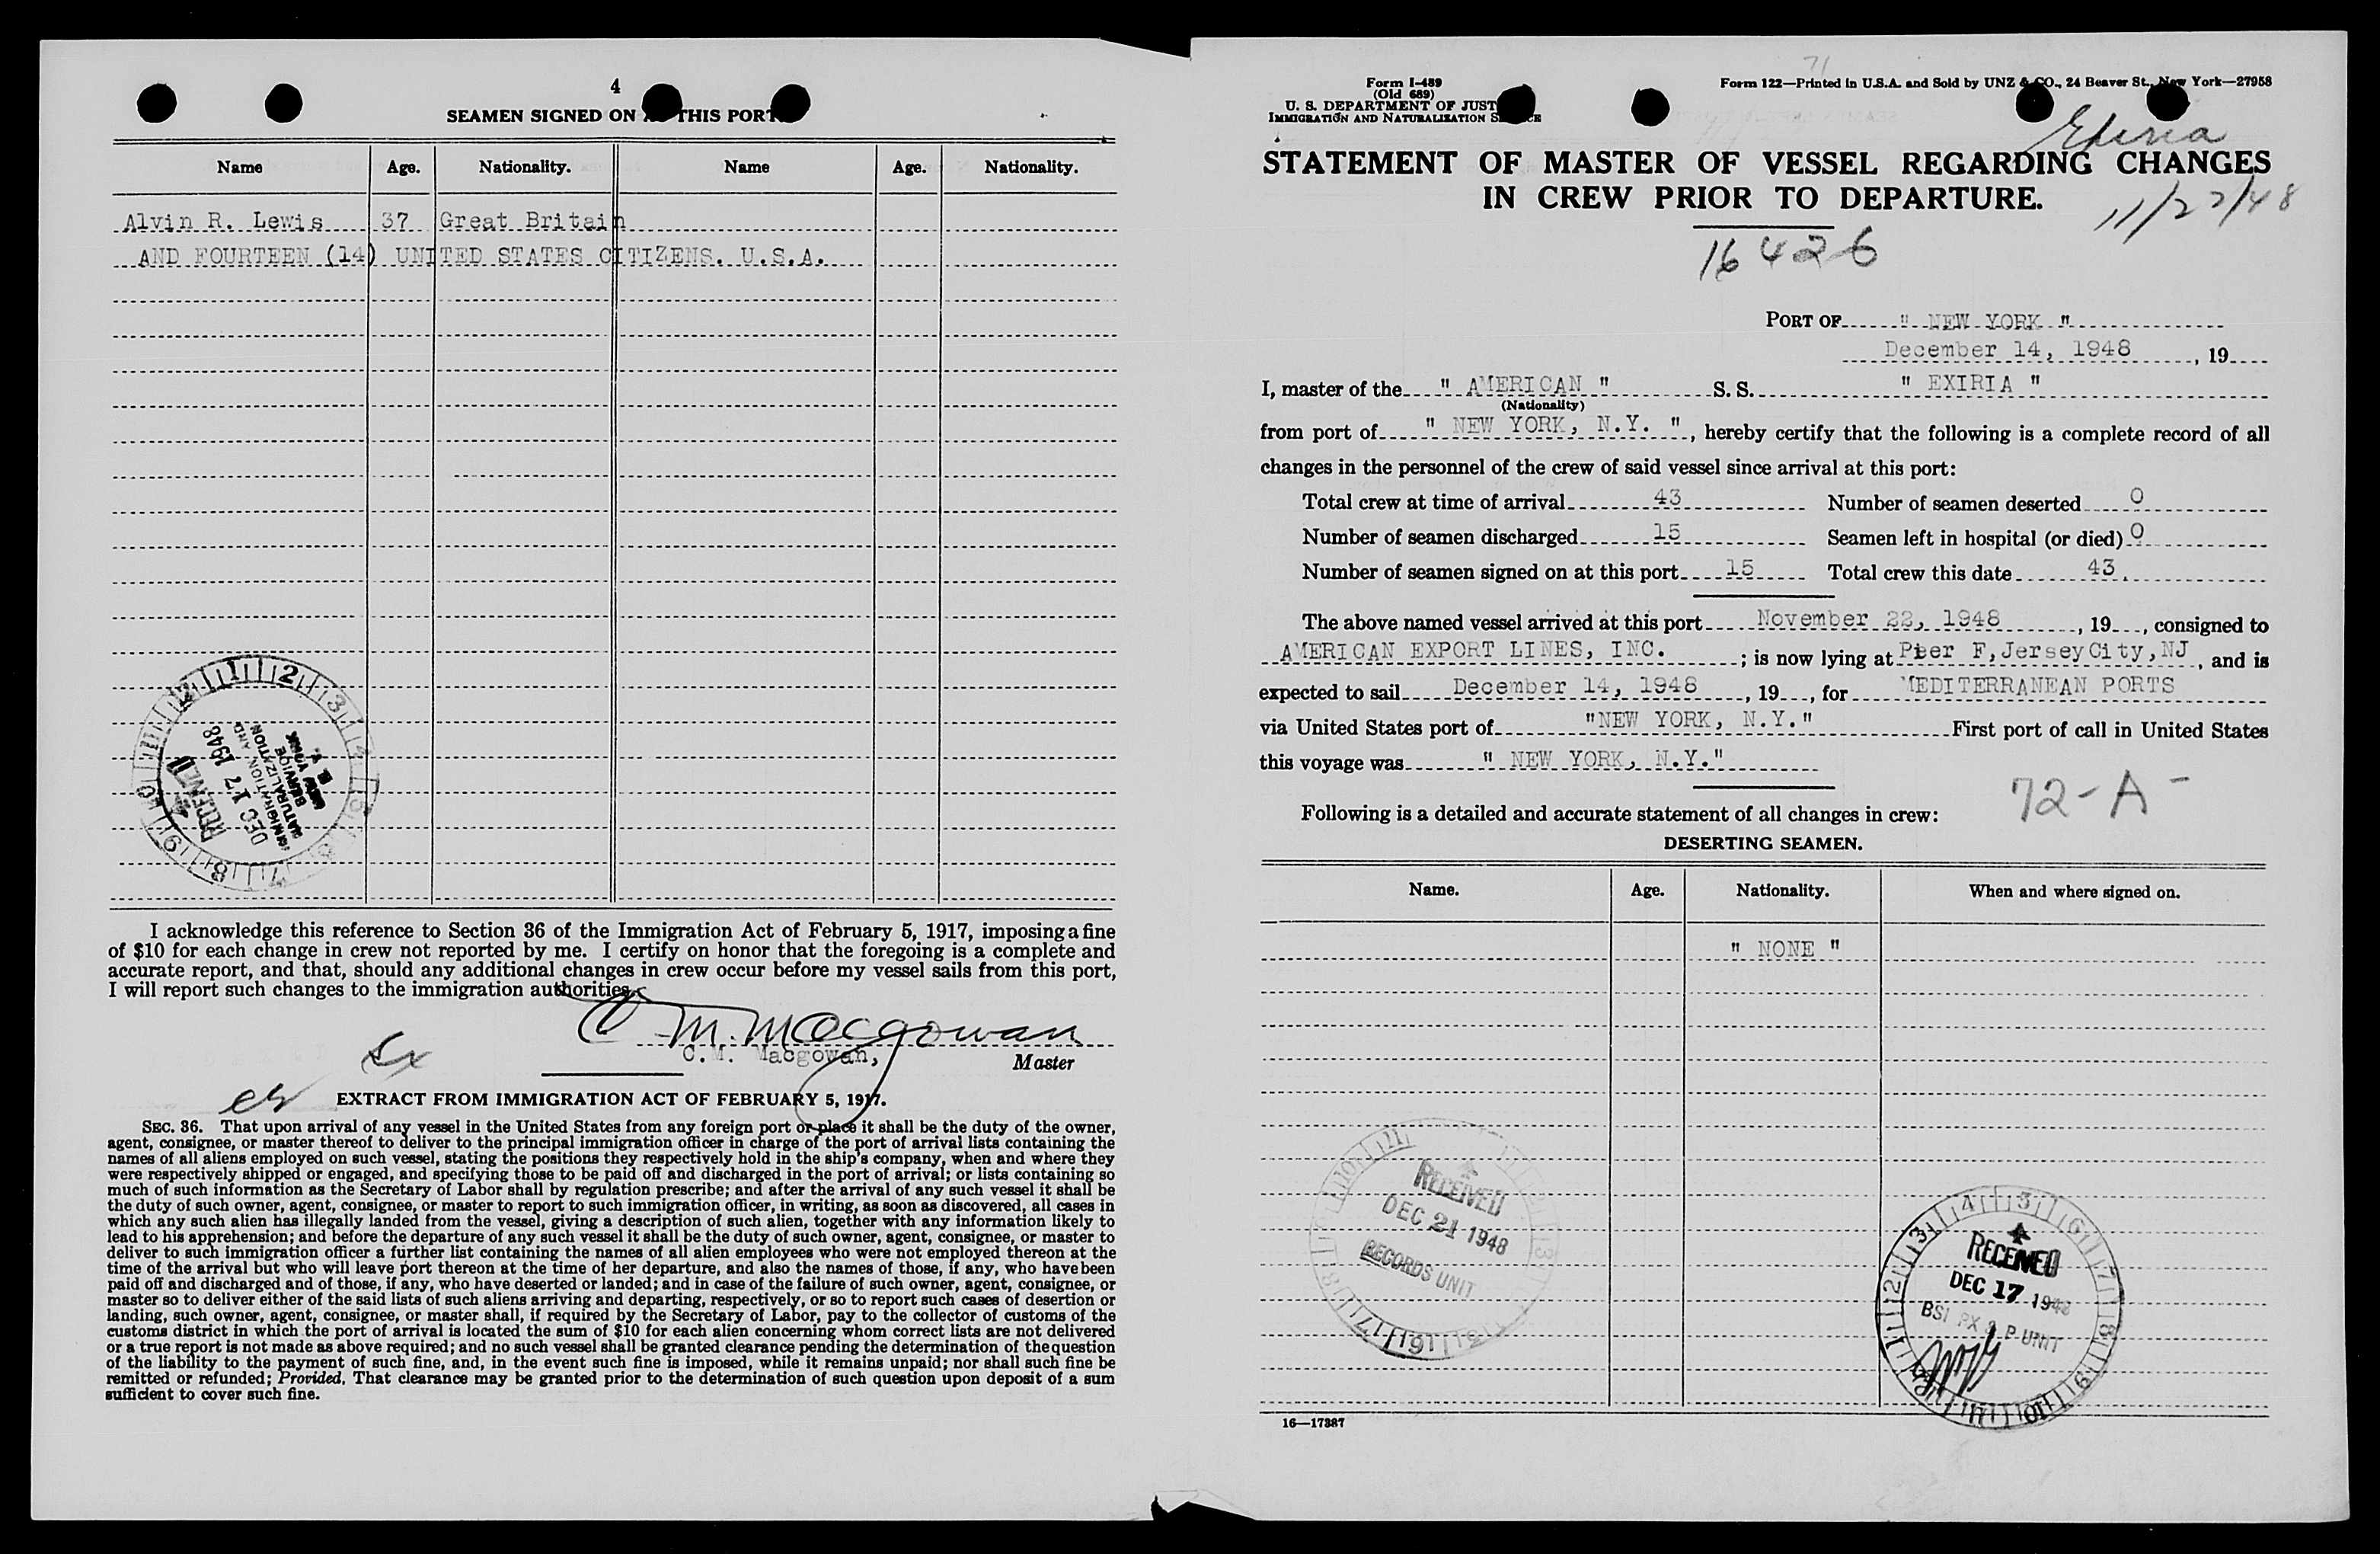 4
SEAMEN SIGNED ON THIS PORT
Name Age. Nationality. Name Age. Nationality.
Alvin R. Lewis 37 Great Britain
AND FOURTEEN (14) UNITED STATES CITIZENS. U.S.A.
RECEIVED
DEC 17 1948
IMMIGRATION AND
NATURALIZATION
SERVICE
NEW YORK
I acknowledge this reference to Section 36 of the Immigration Act of February 5, 1917, imposing a fine
of $10 for each change in crew not reported by me. I certify on honor that the foregoing is a complete and
accurate report, and that, should any additional changes in crew occur before my vessel sails from this port,
I will report such changes to the immigration authorities.
C M. Macgowan
C. M. Macgowan, Master
EXTRACT FROM IMMIGRATION ACT OF FEBRUARY 5, 1917.
SEC. 36. That upon arrival of any vessel in the United States from any foreign port or place it shall be the duty of the owner,
agent, consignee, or master thereof to deliver to the principal immigration officer in charge of the port of arrival lists containing the
names of all aliens employed on such vessel, stating the positions they respectively hold in the ship's company, when and where they
were respectively shipped or engaged, and specifying those to be paid off and discharged in the port of arrival; or lists containing so
much of such information as the Secretary of Labor shall by regulation prescribe; and after the arrival of any such vessel it shall be
the duty of such owner, agent, consignee, or master to report to such immigration officer, in writing, as soon as discovered, all cases in
which any such alien has illegally landed from the vessel, giving a description of such alien, together with any information likely to
lead to his apprehension; and before the departure of any such vessel it shall be the duty of such owner, agent, consignee, or master to
deliver to such immigration officer a further list containing the names of all alien employees who were not employed thereon at the
time of the arrival but who will leave port thereon at the time of her departure, and also the names of those, if any, who have been
paid off and discharged and of those, if any, who have deserted or landed; and in case of the failure of such owner, agent, consignee, or
master so to deliver either of the said lists of such aliens arriving and departing, respectively, or so to report such cases of desertion or
landing, such owner, agent, consignee, or master shall, if required by the Secretary of Labor, pay to the collector of customs of the
customs district in which the port of arrival is located the sum of $10 for each alien concerning whom correct lists are not delivered
or a true report is not made as above required; and no such vessel shall be granted clearance pending the determination of the question
of the liability to the payment of such fine, and, in the event such fine is imposed, while it remains unpaid; nor shall such fine be
remitted or refunded; Provided, That clearance may be granted prior to the determination of such question upon deposit of a sum
sufficient to cover such fine.
71
Form I-489
(Old 689)
U. S. DEPARTMENT OF JUST
IMMIGRATION AND NATURALIZATION S
Form 122—Printed in U.S.A. and Sold by UNZ & CO., 24 Beaver St., New York—27958
STATEMENT OF MASTER OF VESSEL REGARDING CHANGES
IN CREW PRIOR TO DEPARTURE.
11/22/48
16426
PORT OF " NEW YORK "
December 14, 1948, 19
I, master of the " AMERICAN " S. S. " EXIRIA "
(Nationality)
from port of " NEW YORK, N.Y. ", hereby certify that the following is a complete record of all
changes in the personnel of the crew of said vessel since arrival at this port:
Total crew at time of arrival 43 Number of seamen deserted 0
Number of seamen discharged 15 Seamen left in hospital (or died) 0
Number of seamen signed on at this port 15 Total crew this date 43.
The above named vessel arrived at this port November 22, 1948, 19, consigned to
AMERICAN EXPORT LINES, INC.; is now lying at Pier F, Jersey City, NJ, and is
expected to sail December 14, 1948, 19, for MEDITERRANEAN PORTS
via United States port of "NEW YORK, N.Y." First port of call in United States
this voyage was " NEW YORK, N.Y."
72-A-
Following is a detailed and accurate statement of all changes in crew:
DESERTING SEAMEN.
Name. Age. Nationality. When and where signed on.
" NONE "
RECEIVED
DEC 21 1948
RECORDS UNIT
RECEIVED
DEC 17 1948
BSI PX & P UNIT
16—17387